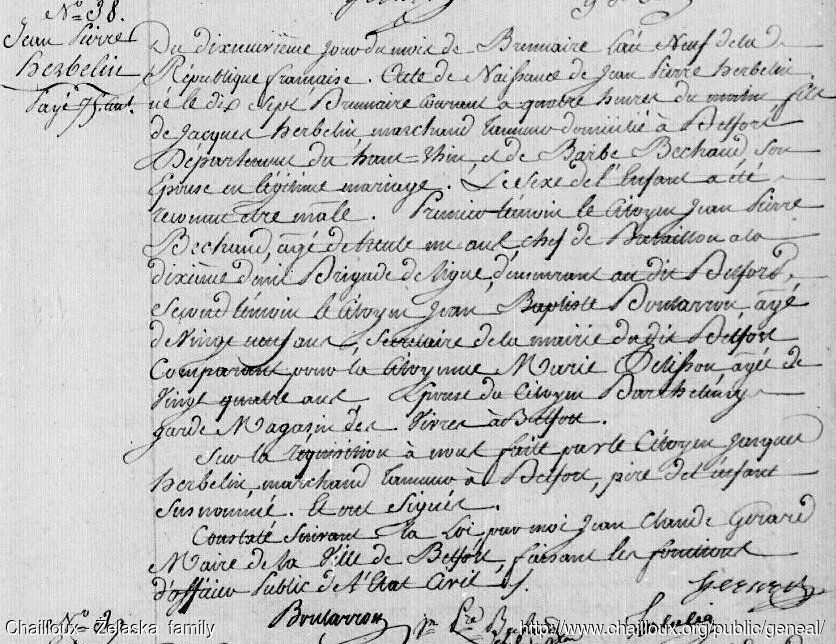 N.º 38.
Jean Pierre
herbelin
Payé 75 cent.
Du dixneuvième jour du mois de Brumaire l'an Neuf de la
République française. Acte de Naissance de Jean Pierre herbelin
né le dix Sept Brumaire courant a quatre heures du matin fils
de Jacques herbelin marchand Tanneur domicilié à Belfort
Département du haut=Rhin et de Barbe Bechaud son
Epouse en légitime mariage. Le sexe de l'Enfant a été
reconnu etre male. Premier témoin le citoyen Jean Pierre
Bechaud, agé de trente un ans chef de Bataillon a la
dixième demi Brigade de ligne, demeurant au dit Belford,
Second témoin le Citoyen Jean Baptiste Boutarron agé
de Vingt neuf ans, Secretaire de la mairie du dit Belfort
Comparant pour la Citoyenne Marie Pelisson agée de
Vingt quatre ans Epouse du Citoyen Barthelemy
garde Magasin des Vivres à Belfort.
Sur la requisition à nous faite par le Citoyen Jacques
herbelin marchand Tanneur à Belfort, père de l'enfant
susnommé. Et ont signés.
Constaté Suivant la Loi par moi Jean Claude Gérard
Maire de la Ville de Belfort, faisant les fonctions
d'officier Public de l'Etat Civil
Boutarron
N.º
Chailloux - Zelaska family
http://www.chailloux.org/public/geneal/